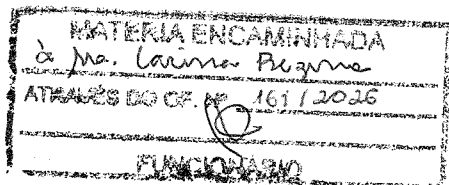 MATERIA ENCAMINHADA
à Sra. Carina
ATRAVÉS DO OF. Nº 161 / 2026
FUNCIONÁRIO